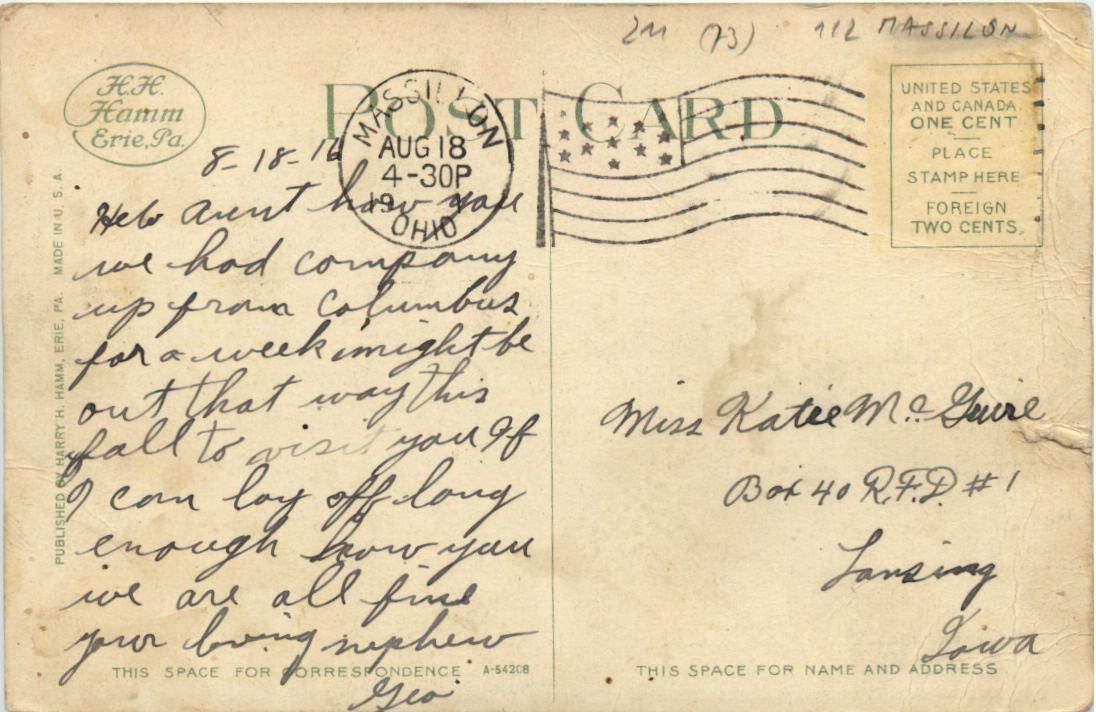 (73) 112 MASSILON
H.H.
Hamm
Erie, Pa.
POST CARD
MASSILLON
AUG 18
4-30P
19
OHIO
UNITED STATES
AND CANADA
ONE CENT
PLACE
STAMP HERE
FOREIGN
TWO CENTS.
PUBLISHED BY HARRY H. HAMM, ERIE, PA. MADE IN U.S.A.
8-18-16
Hello aunt how you
we had company
up from Columbus
for a week i might be
out that way this
fall to visit you If
I can lay off long
enough how you
we are all fine
your loving nephew
Geo
Miss Katie McGuire
Box 40 R.F.D. #1
Lansing
Iowa
THIS SPACE FOR CORRESPONDENCE A-54208
THIS SPACE FOR NAME AND ADDRESS